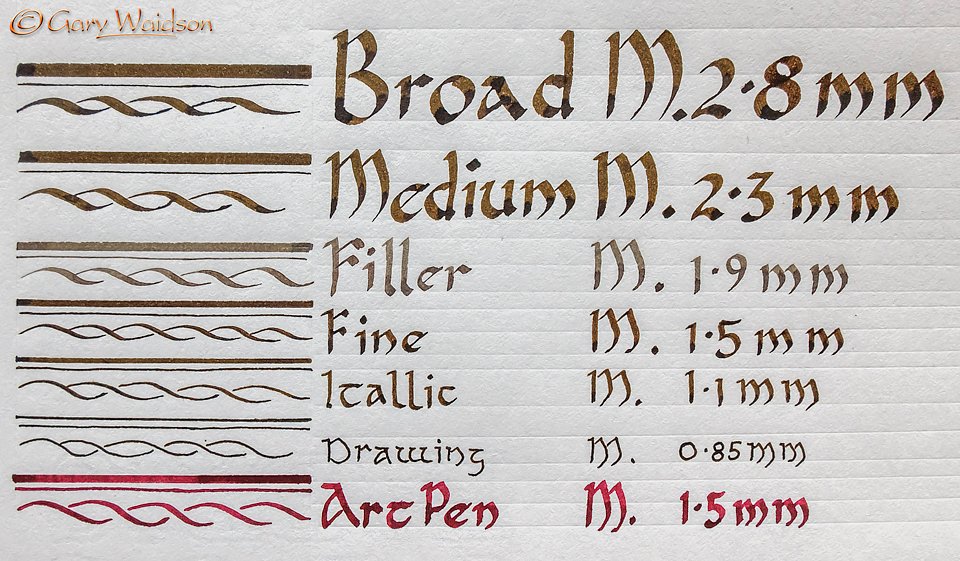 © Gary Waidson
Broad M. 2·8 mm
Medium M. 2·3 mm
Filler M. 1·9 mm
Fine M. 1·5 mm
Itallic M. 1·1 mm
Drawing M. 0·85 mm
Art Pen M. 1·5 mm